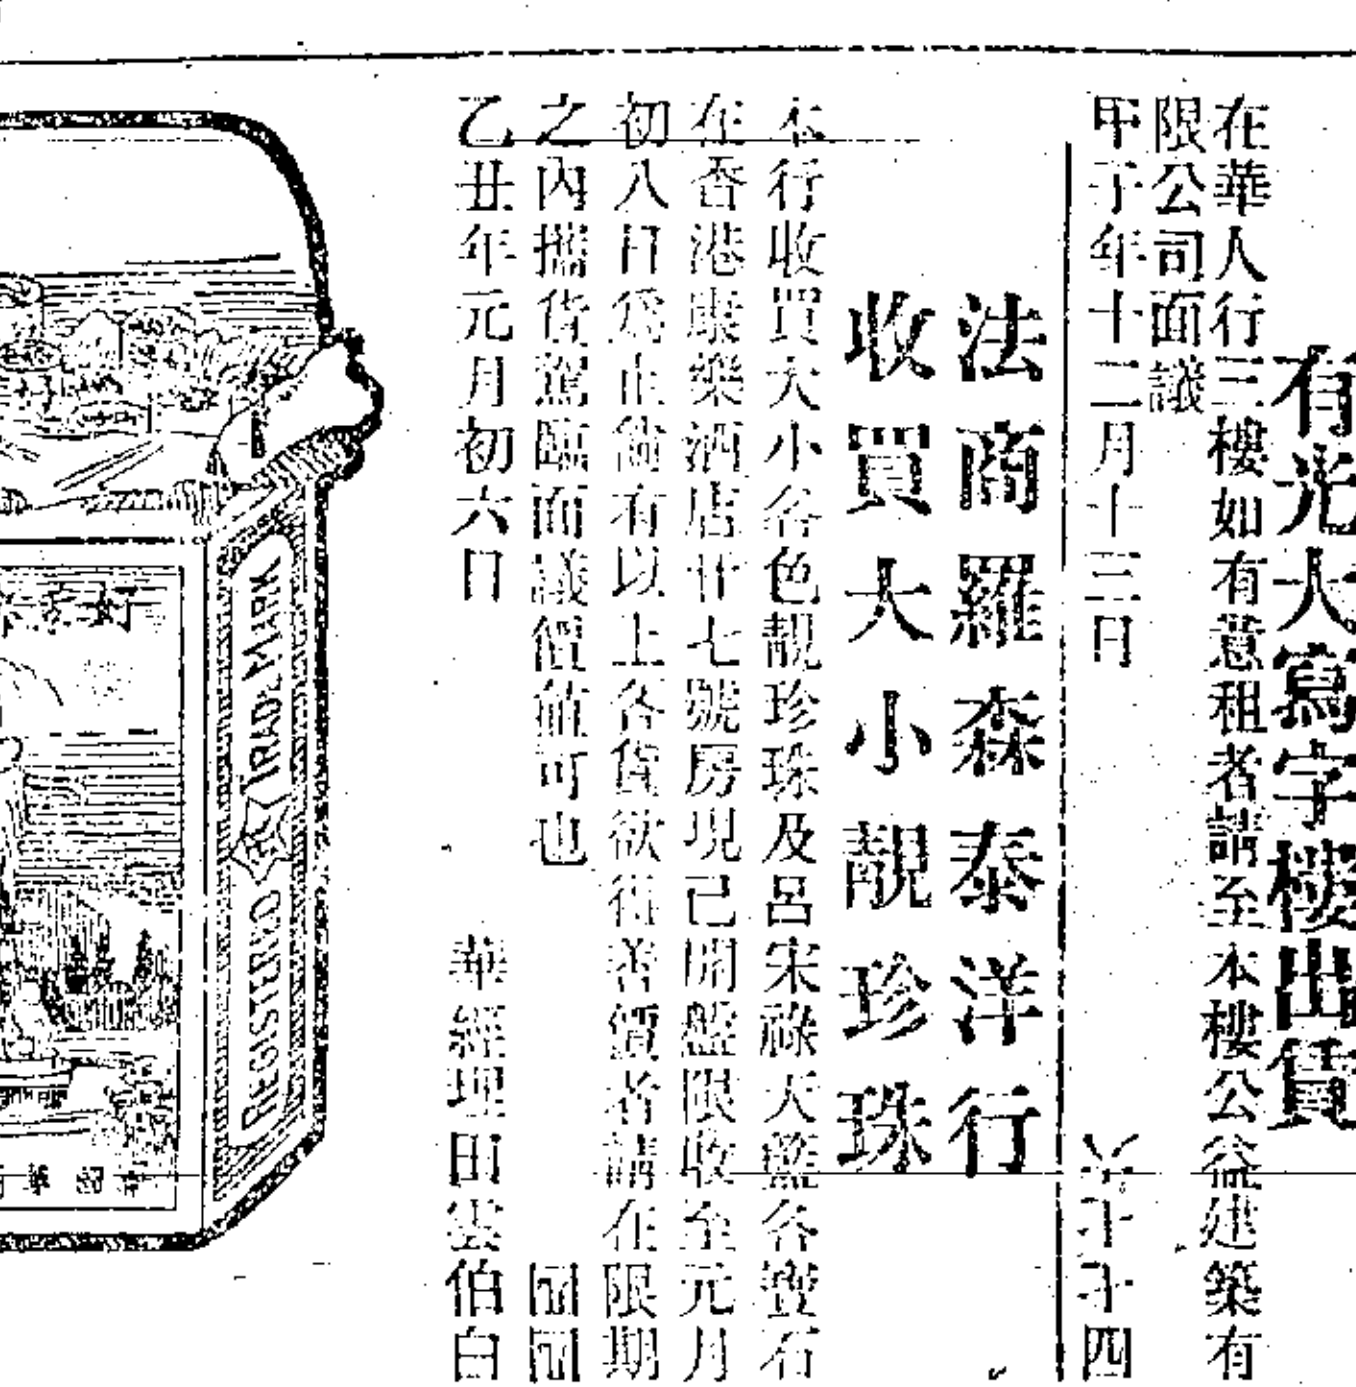 有光大寫字樓出賃
在華人行三樓如有意租者請至本樓公益建築有
限公司面議
甲子年十二月十三日
法商羅森泰洋行
收買大小靚珍珠
本行收買大小各色靚珍珠及呂宋祿天藍各寶石
在香港東樂酒店廿七號房現已開盤限收至元月
初八日為止倘有以上各貨欲得善價者請在限期
之內攜貨駕臨面議價值可也
乙丑年元月初六日 華經理田雲伯白
好
REGISTERED TRADE MARK